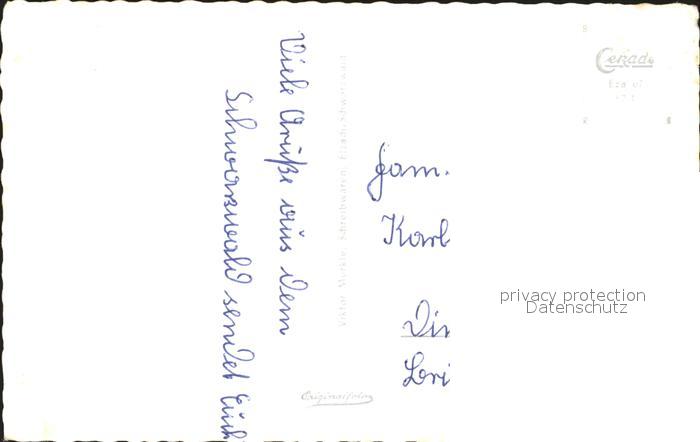 Viele Grüße aus dem
Schwarzwald sendet Euch
Viktor Merkle, Schreibwaren, Elzach/Schwarzwald
Originalfoto
Cekade
Fam.
Karl
privacy protection
Datenschutz